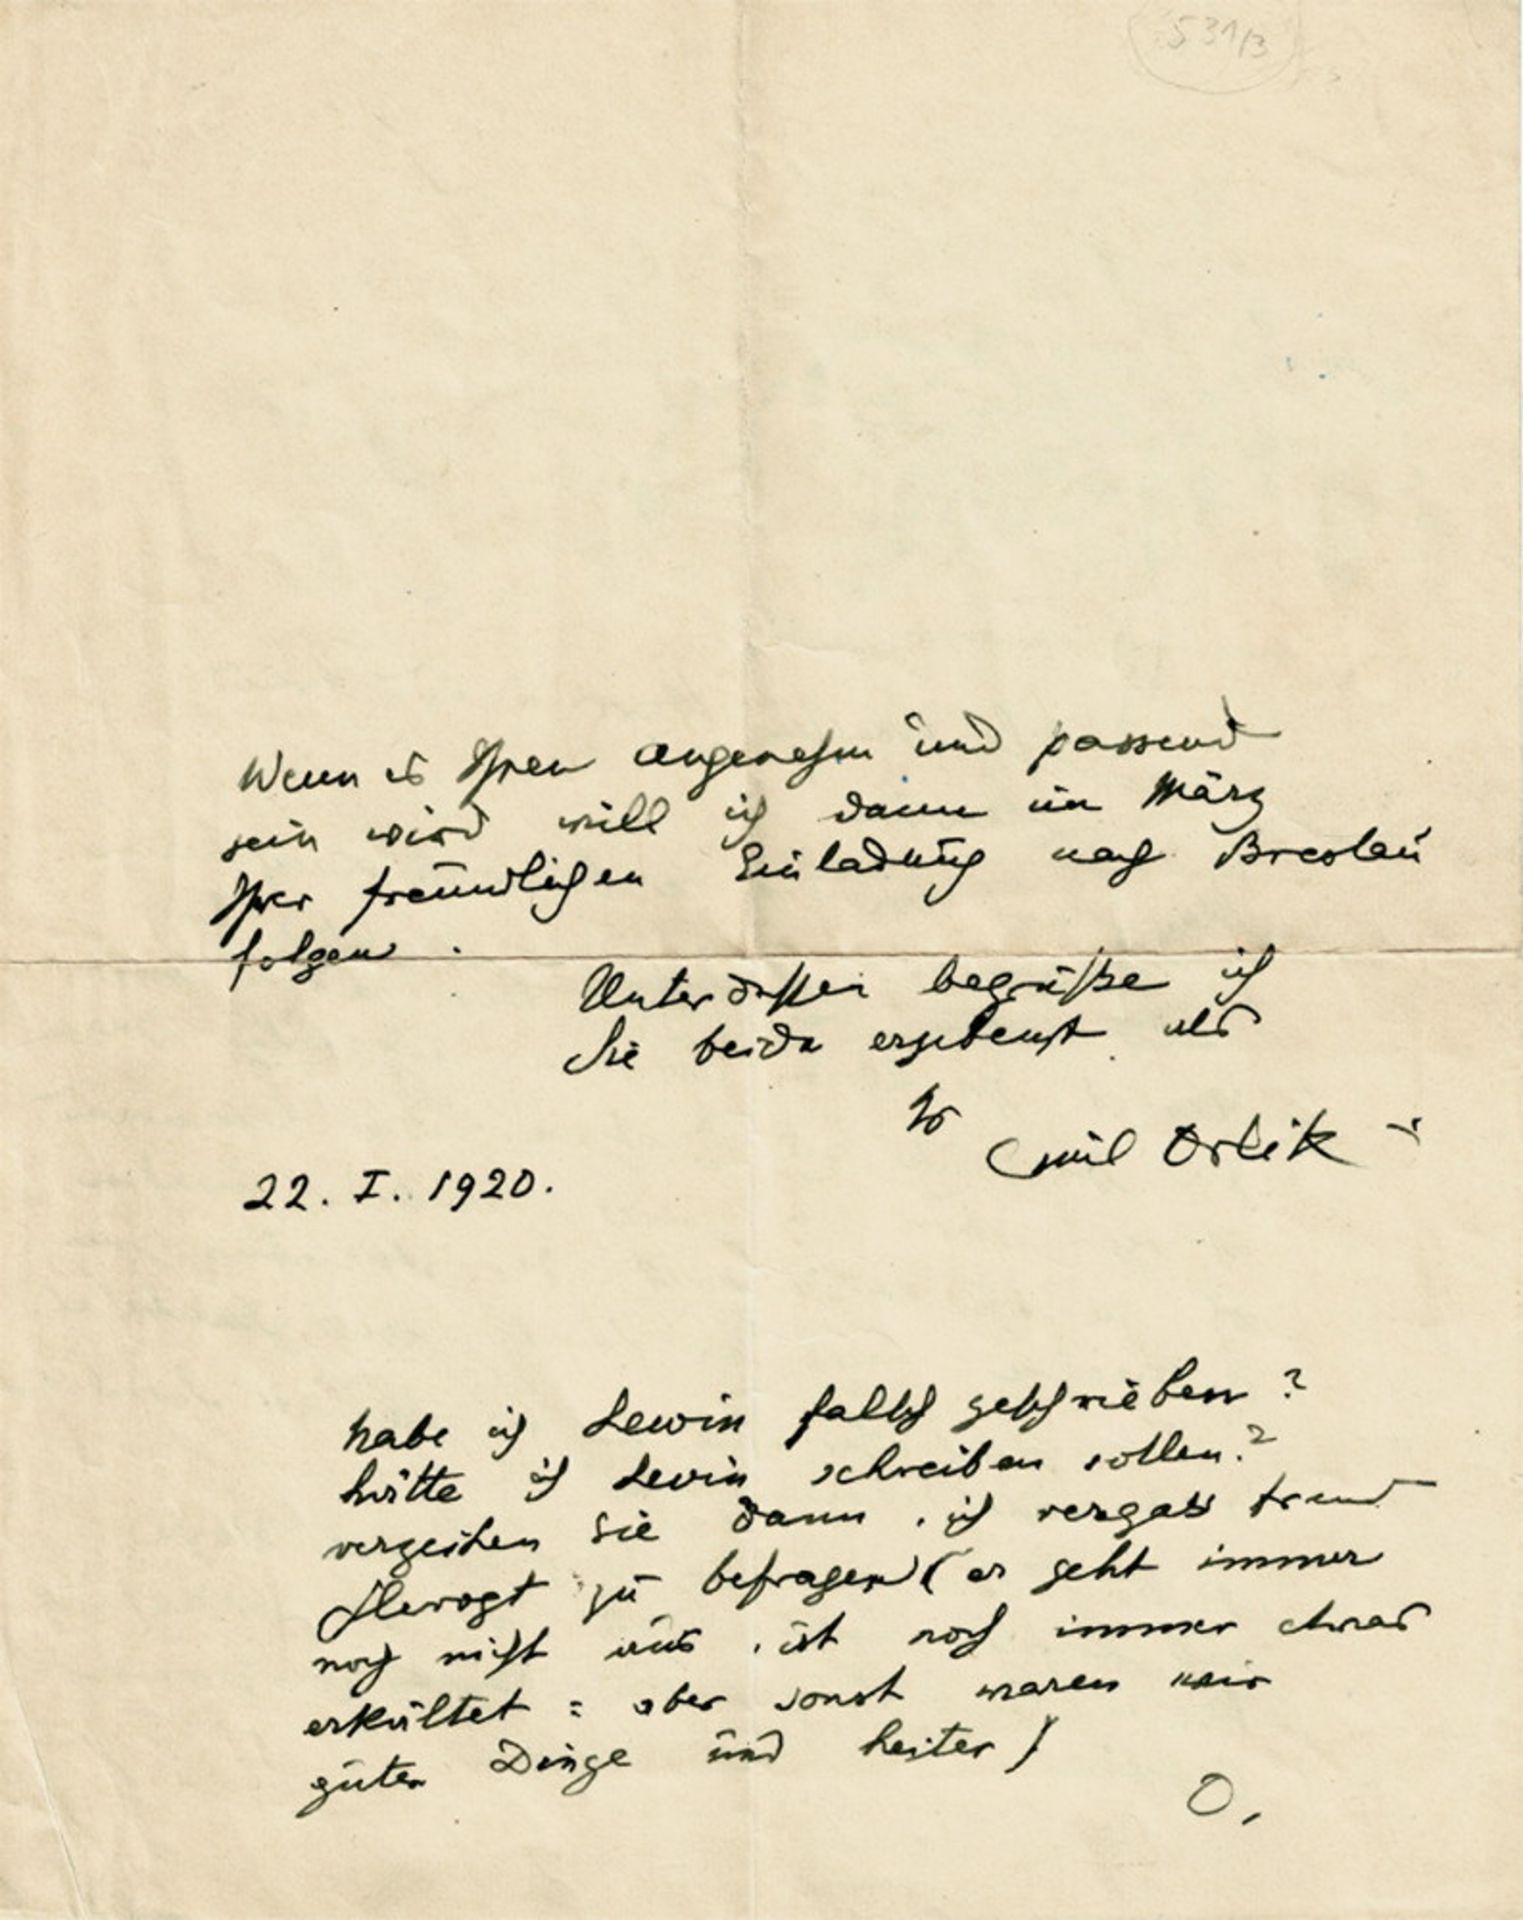 531/3
Wenn es Ihnen angenehm und passend
sein wird will ich dann im März
Ihrer freundlichen Einladung nach Breslau
folgen.
Unterdessen begrüße ich
Sie beide ergebenst als
Ihr
Emil Orlik
22. I. 1920.
habe ich Lewin falsch geschrieben?
hätte ich Levin schreiben sollen?
verzeihen Sie dann. ich vergass freund
zu befragen (er geht immer
noch nicht aus, ist noch immer etwas
erkältet: aber sonst waren wir
guter Dinge und heiter)
O.